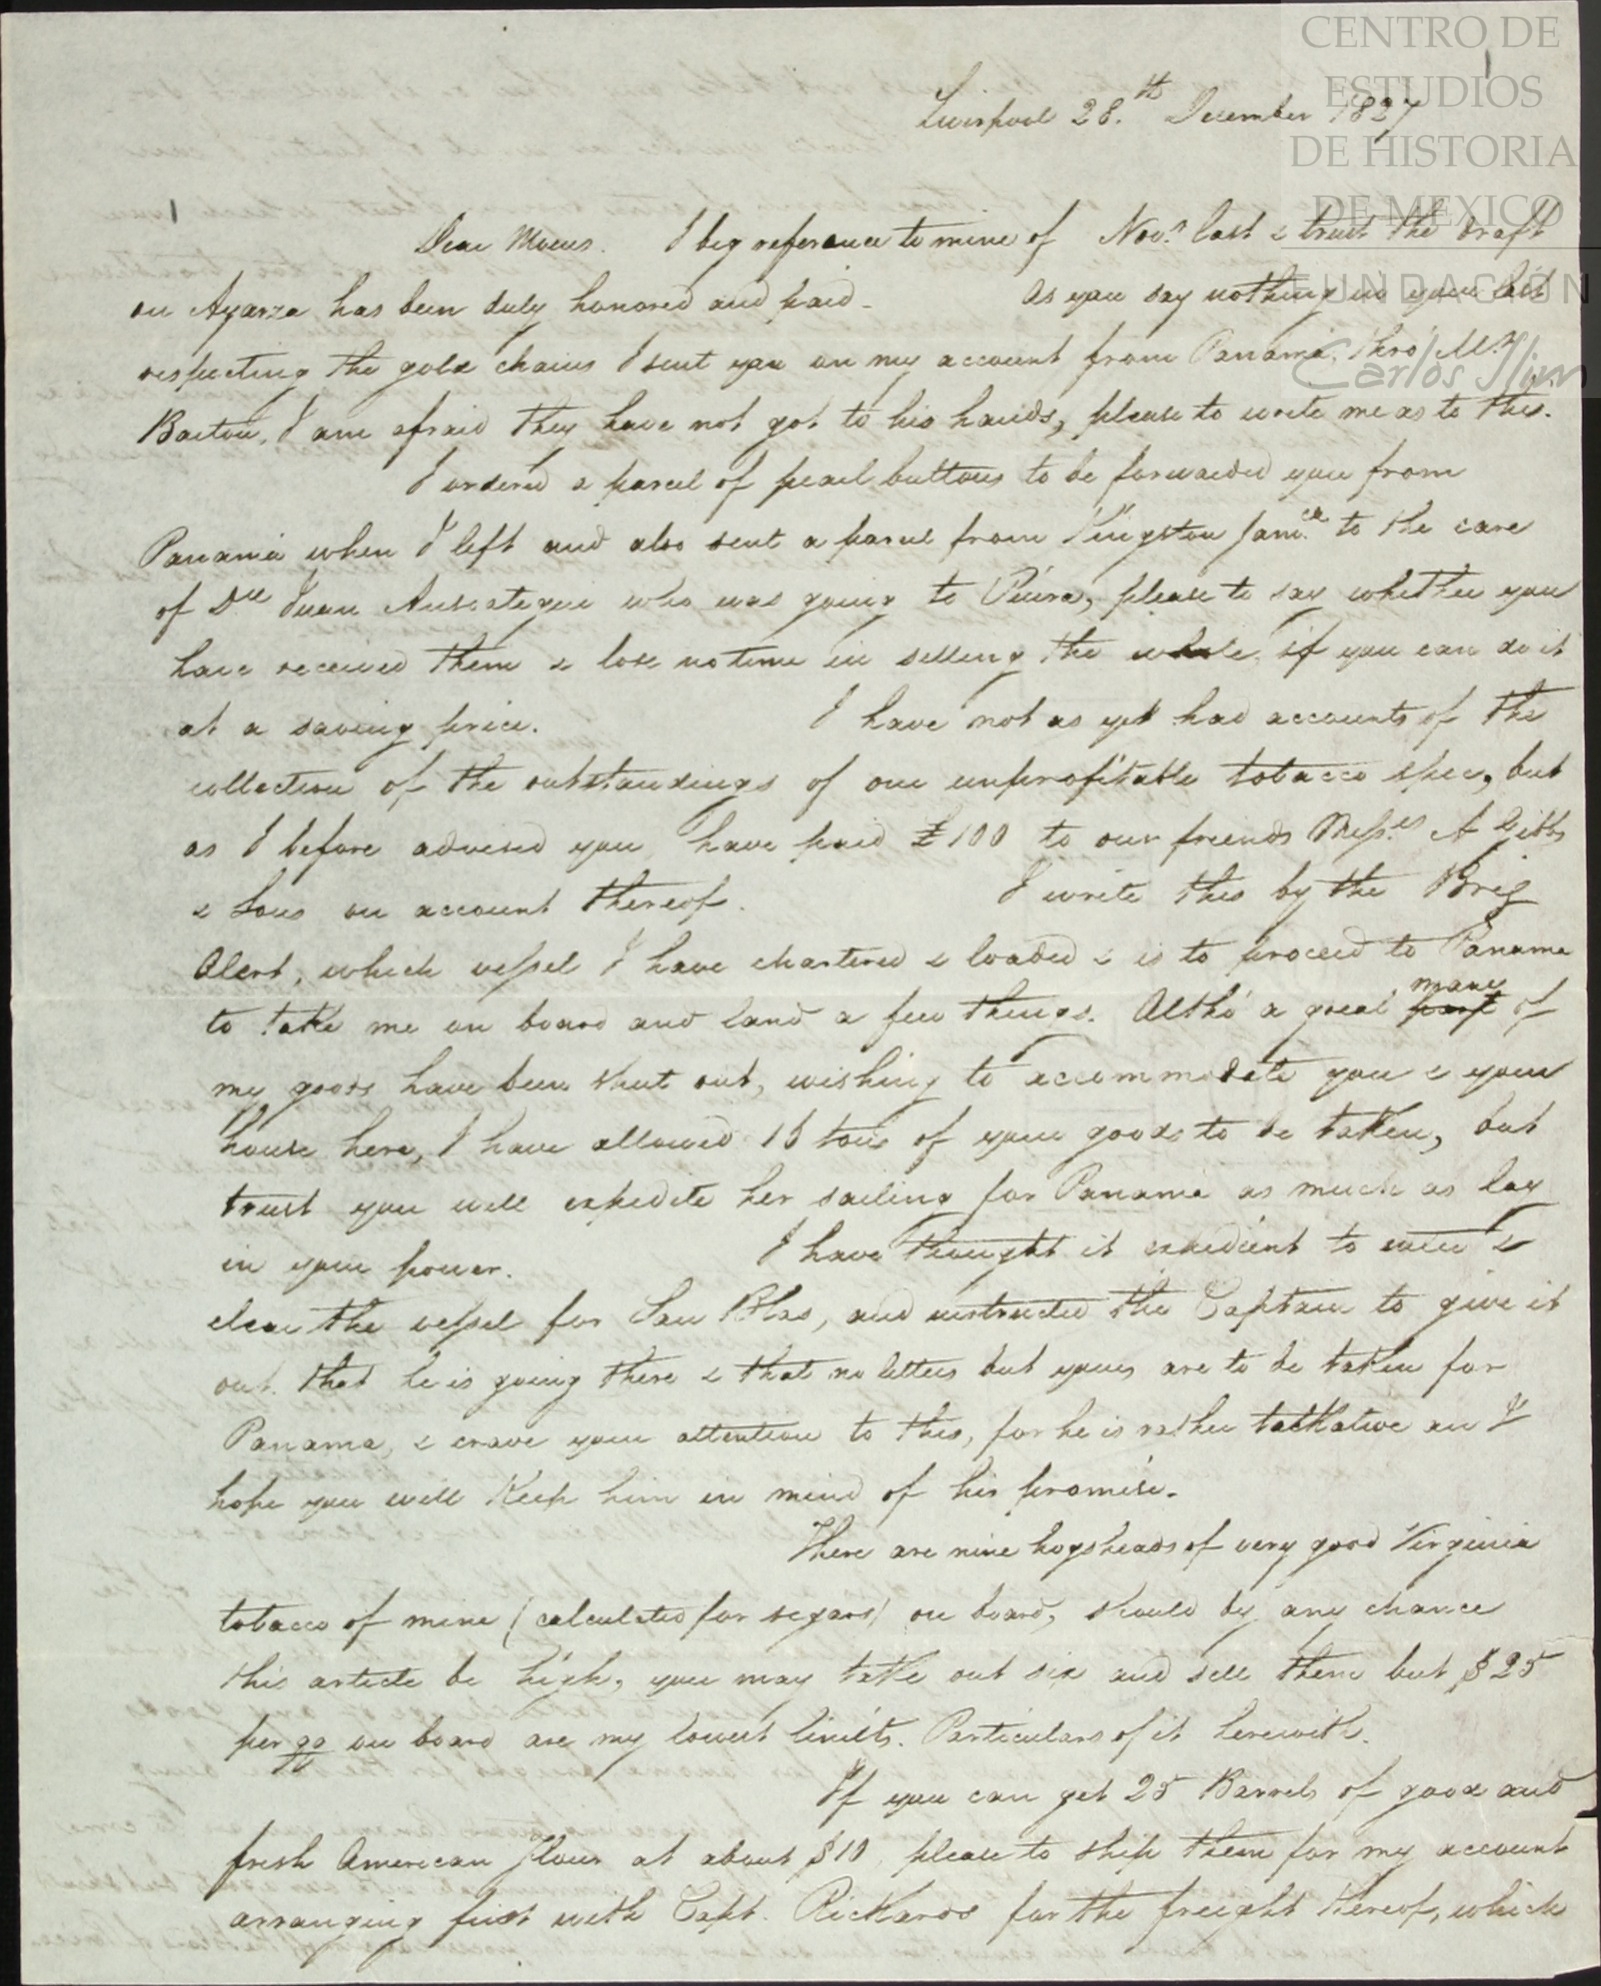 CENTRO DE
ESTUDIOS
DE HISTORIA
DE MEXICO
FUNDACIÓN
Carlos Slim
1
1
Liverpool 28.th December 1827
Dear Moens. I beg reference to mine of Nov.r last & trust the draft
on Ayarza has been duly honored and paid - As you say nothing in your last
respecting the gold chains I sent you on my account from Panamá, thro' M.r
I am afraid they have not got to his hands, please to write me as to this.
I ordered a parcel of pearl buttons to be forwarded you from
Panamá when I left and also sent a parcel from Kingston Jam.ca to the care
of Dn Juan who was going to Piura, please to say whether you
have received them & lose no time in selling the whole if you can do it
at a saving price. I have not as yet had accounts of the
collection of the outstandings of our unprofitable tobacco spec, but
as I before advised you have paid £100 to our friends Mess.rs A Gibbs
& Sons on account thereof. I write this by the Brig
Alert, which vessel I have chartered & loaded & is to proceed to Panama
to take me on board and land a few things. Altho' a great part many of
my goods have been shut out, wishing to accommodate you & your
house here, I have allowed 15 tons of your goods to be taken, but
trust you will expedite her sailing for Panamá as much as lay
in your power. I have thought it expedient to enter &
clear the vessel for San Blas, and instructed the Captain to give it
out that he is going there & that no letters but yours are to be taken for
Panama, & crave your attention to this, for he is rather talkative an I
hope you will keep him in mind of his promise.
There are nine hogsheads of very good Virginia
tobacco of mine (calculated for segars) on board, should by any chance
this article be high, you may take out six and sell them but $25
per qq on board are my lowest limits. Particulars of it herewith.
If you can get 25 Barrels of good and
fresh American Flour at about $10 please to ship them for my account
arranging first with Capt. Rickards for the freight thereof, which